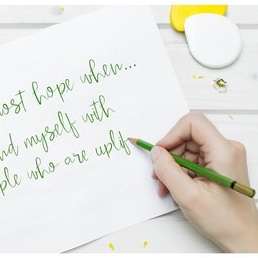 ost hope when...
nd myself with
ple who are upl